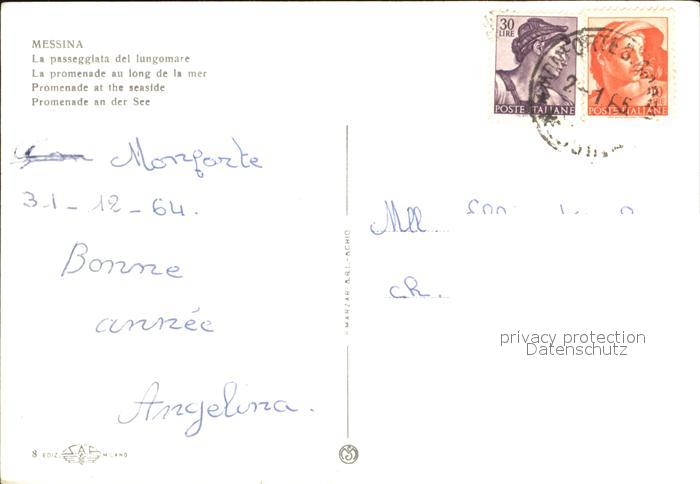 MESSINA
La passeggiata del lungomare
La promenade au long de la mer
Promenade at the seaside
Promenade an der See
Monforte
31-12-64.
Bonne
année
Angelina.
8 EDIZ. SAF MILANO
30
LIRE
POSTE ITALIANE
POSTE ITALIANE
2-1 65
Mll
ch.
privacy protection
Datenschutz